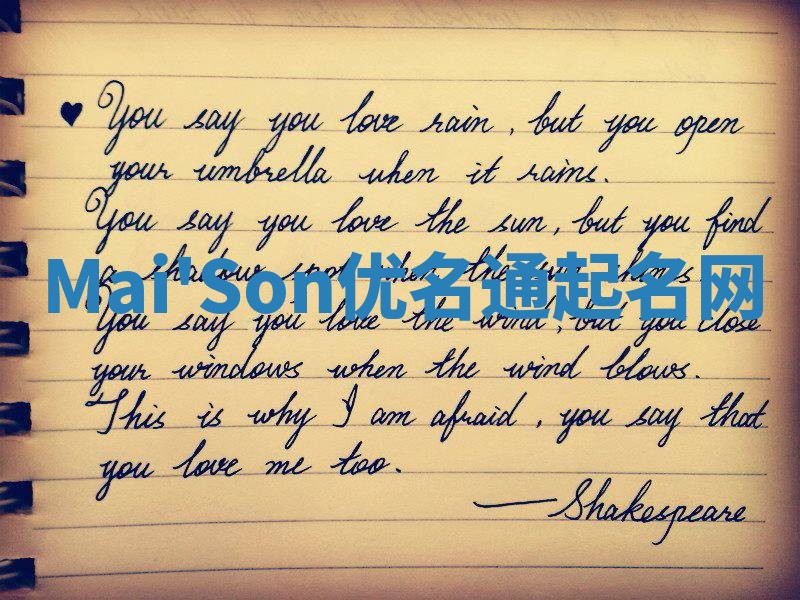 ♥ You say you love rain, but you open
your umbrella when it rains.
You say you love the sun, but you find
a shadow spot when the sun shines
Mai'Son优名通起名网
You say you love the wind, but you close
your windows when the wind blows.
This is why I am afraid, you say that
you love me too.
—Shakespeare